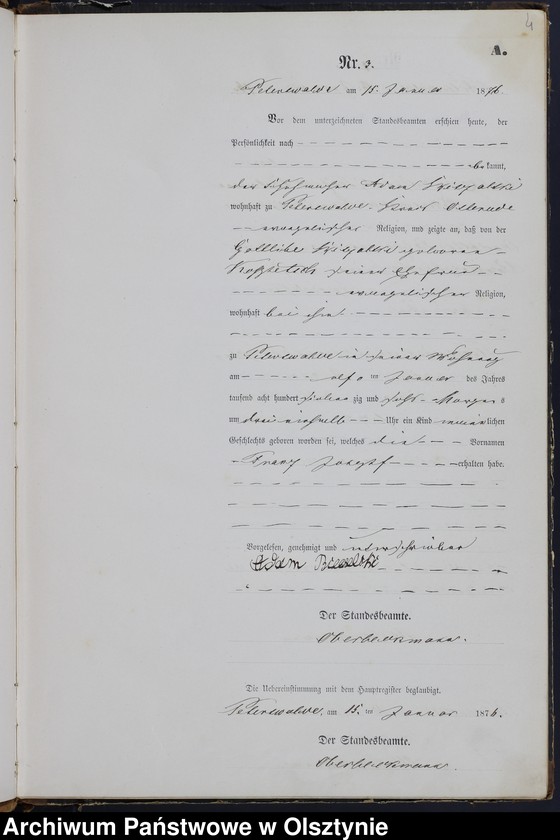 4
A.
Nr. 3.
Peterswalde am 15. Januar 1876.
Vor dem unterzeichneten Standesbeamten erschien heute, der
Persönlichkeit nach
bekannt,
der Adam
wohnhaft zu Peterswalde, Kreis Osterode
evangelischer Religion, und zeigte an, daß von der
Gottliebe geborene
seiner Ehefrau
evangelischer Religion,
wohnhaft bei ihm
zu Peterswalde in seiner Wohnung
am elften Januar des Jahres
tausend acht hundert siebenzig und sechs Morgens
um drei einhalb Uhr ein Kind männlichen
Geschlechts geboren worden sei, welches die Vornamen
Franz Joseph erhalten habe.
Vorgelesen, genehmigt und unterschrieben
Adam
Der Standesbeamte.
Oberbeckmann.
Die Uebereinstimmung mit dem Hauptregister beglaubigt.
Peterswalde, am 15. ten Januar 1876.
Der Standesbeamte.
Oberbeckmann.
Archiwum Państwowe w Olsztynie